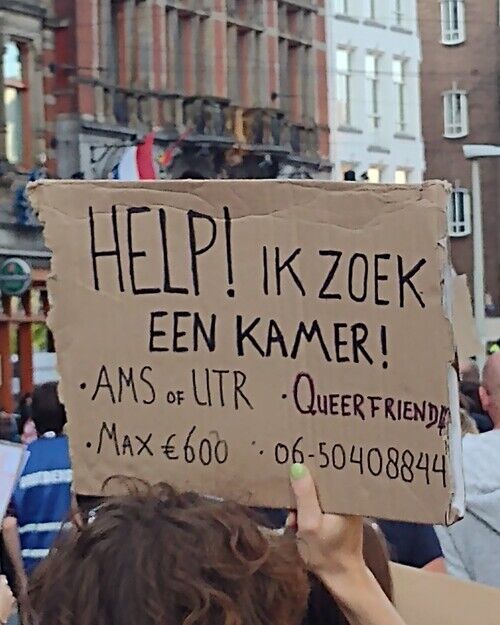 HELP! IK ZOEK
EEN KAMER!
• AMS OF UTR • QUEERFRIENDLY
• MAX €600 • 06-50408844